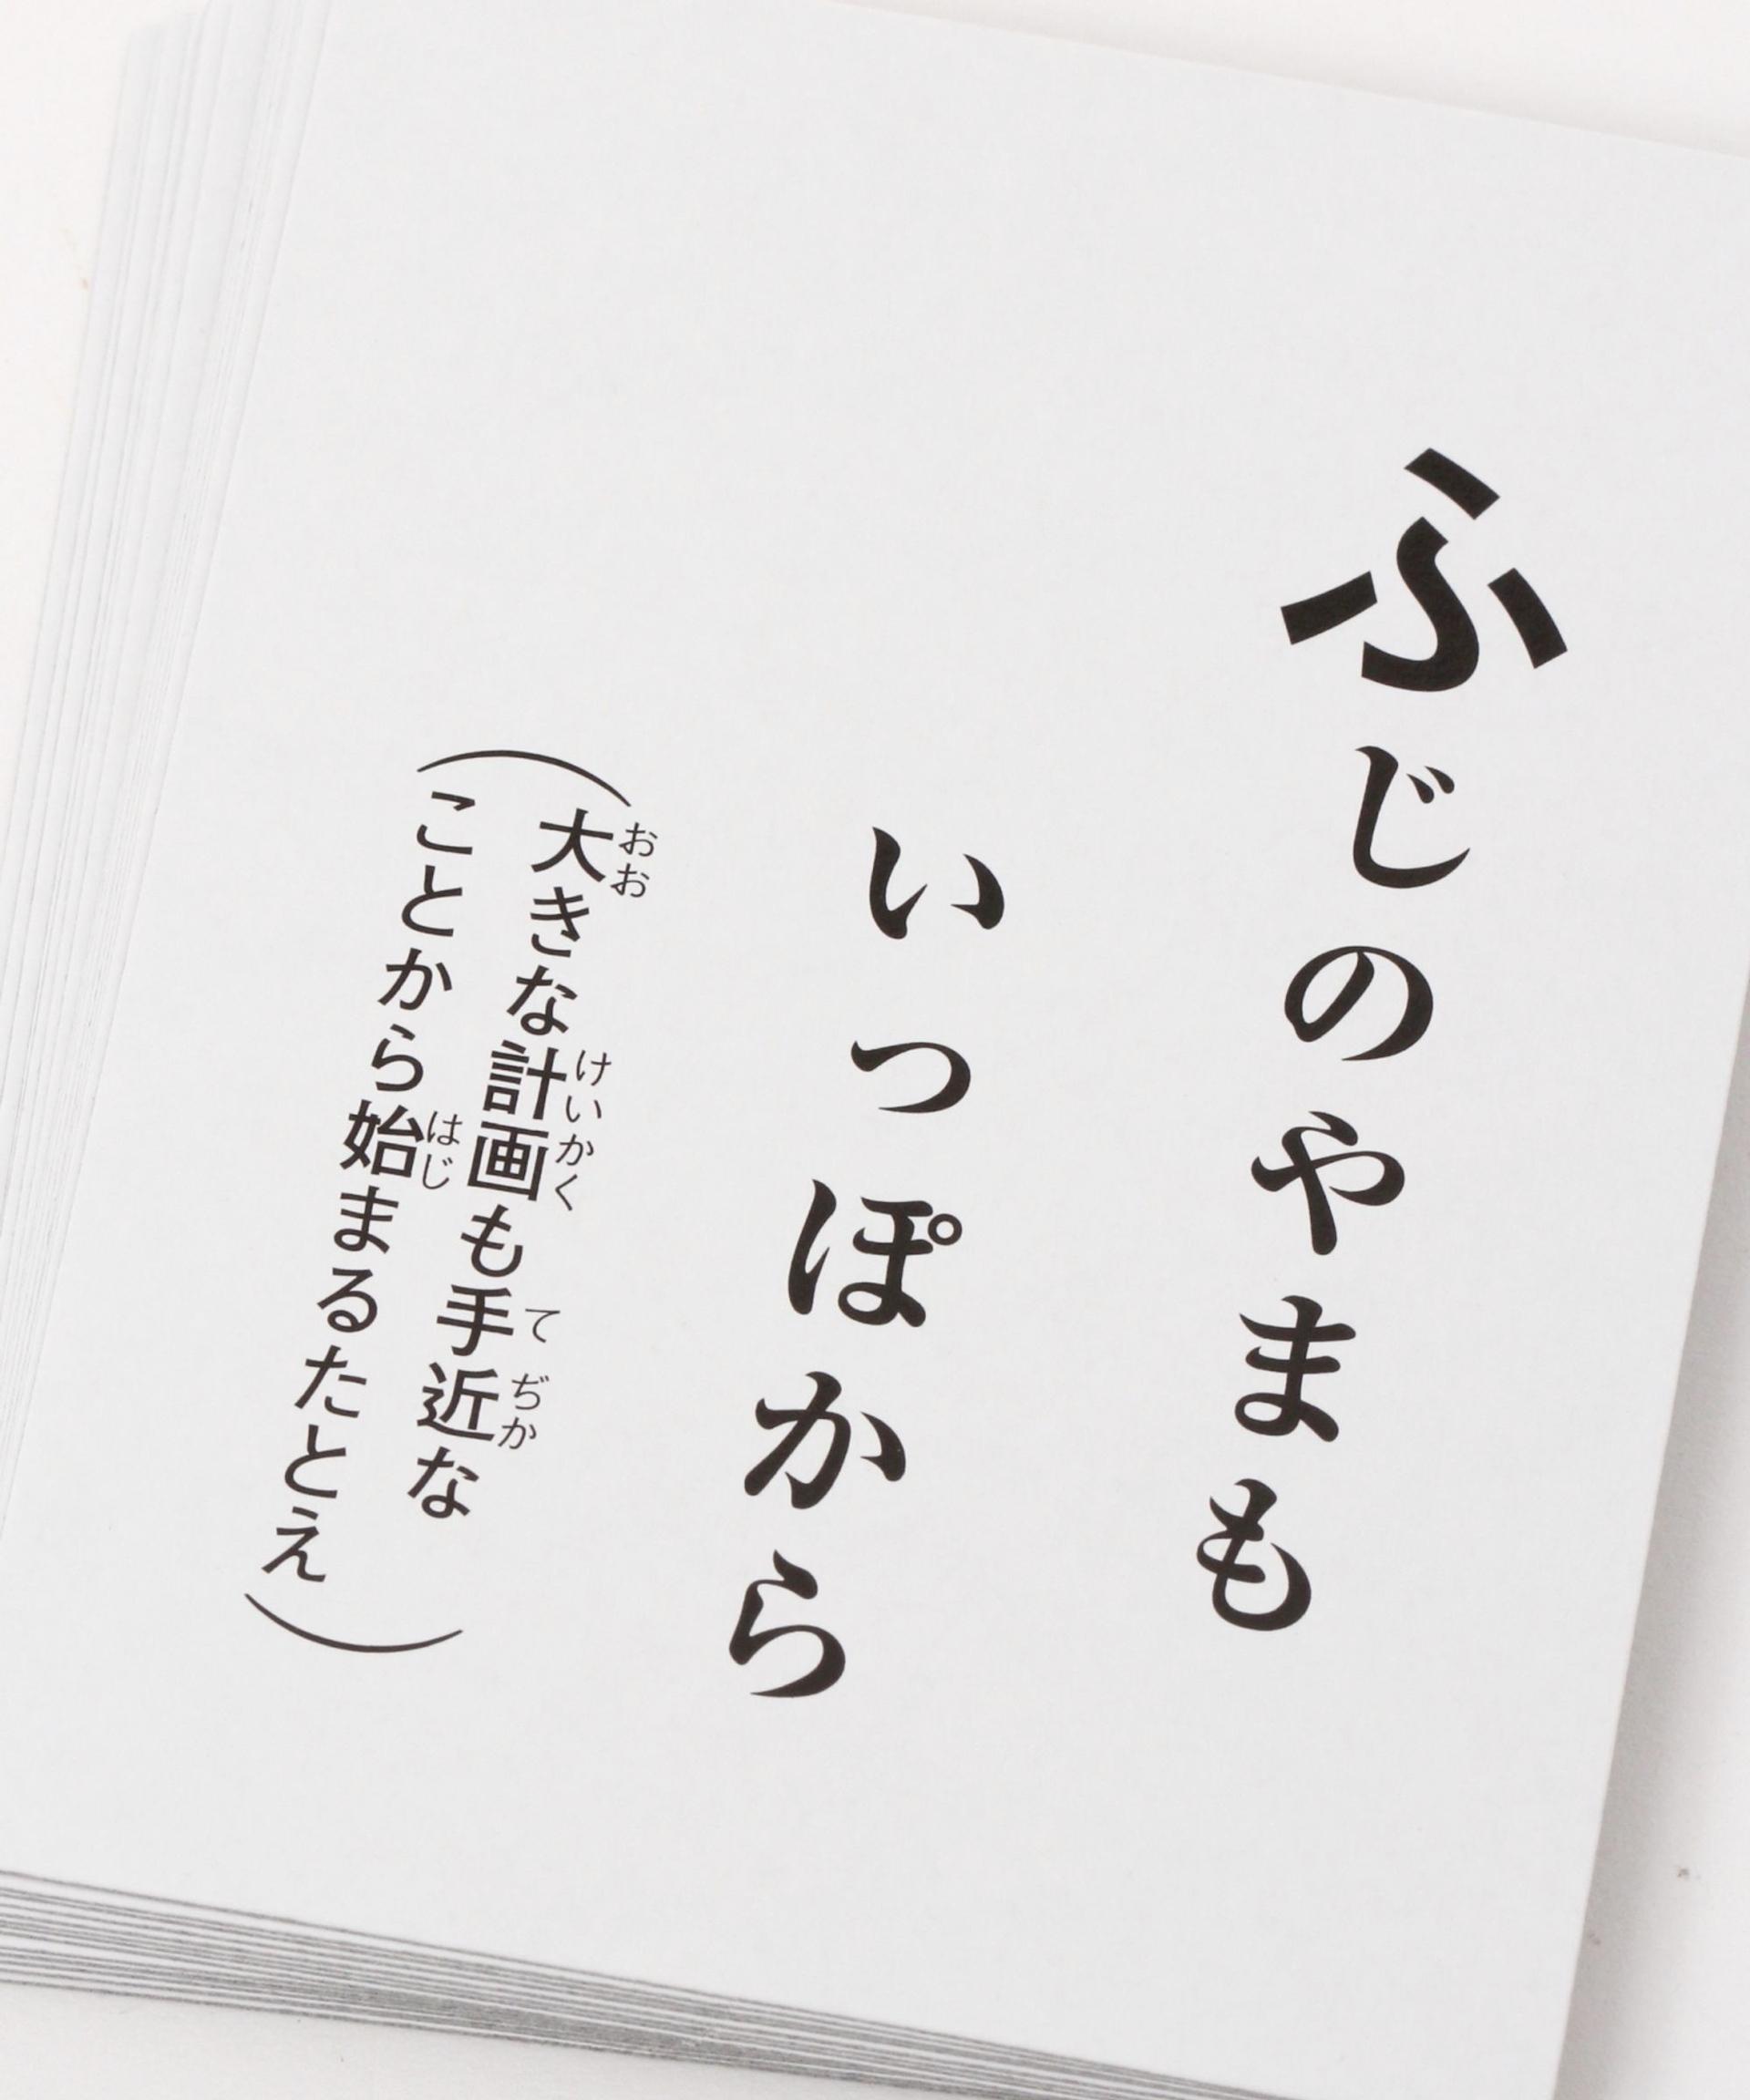 ふじのやまも
いっぽから
(大きな計画も手近な
ことから始まるたとえ)
おお
けいかく
て
ぢか
はじ